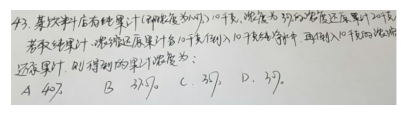 43. 某饮料店有纯果汁(即浓度为100%)10千克,浓度为30%的浓缩还原果汁20千克
若取纯果汁、浓缩还原果汁各10千克倒入10千克纯净水中,再倒入10千克的浓缩
还原果汁.则得到的果汁浓度为:
A 40% B 37.5% C. 35% D. 30%